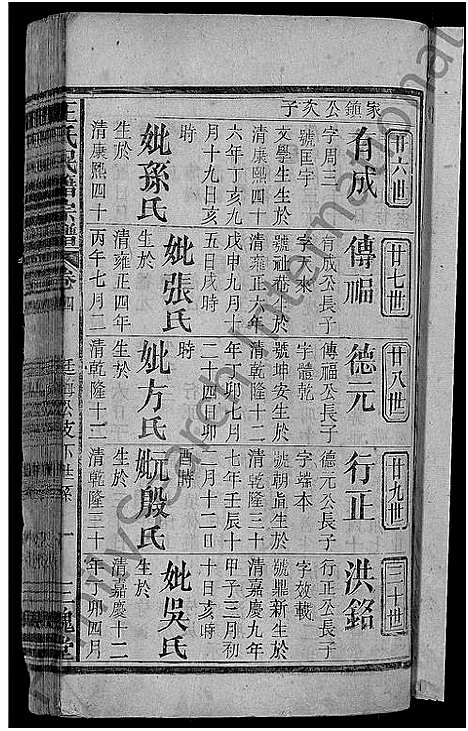 家鎚公次子
廿六世
有成
字周三
號匡字
文學生生於
清康熙四十
六年丁亥九
月十九日亥
時
妣孫氏
生於
清康熙四十
廿七世
傳福
有成公長子
字天來
號祉蕃生於
清雍正六年
戊申九月十
五日戌時
妣張氏
生於
清雍正四年
丙午七月二
廿八世
德元
傳福公長子
字體乾
號坤安生於
清乾隆十二
年丁卯七月
二十四日卯
時
妣方氏
生於
清乾隆十二
廿九世
行正
德元公長子
字端本
號朝貞生於
清乾隆三十
七年壬辰十
二月十二日
酉時
妣殷氏
生於
清乾隆三十
三十世
洪銘
行正公長子
字效載
號鼎新生於
清嘉慶九年
甲子三月初
十日亥時
妣吳氏
生於
清嘉慶十二
年丁卯四月
王氏
宗譜
卷四
一
三槐堂